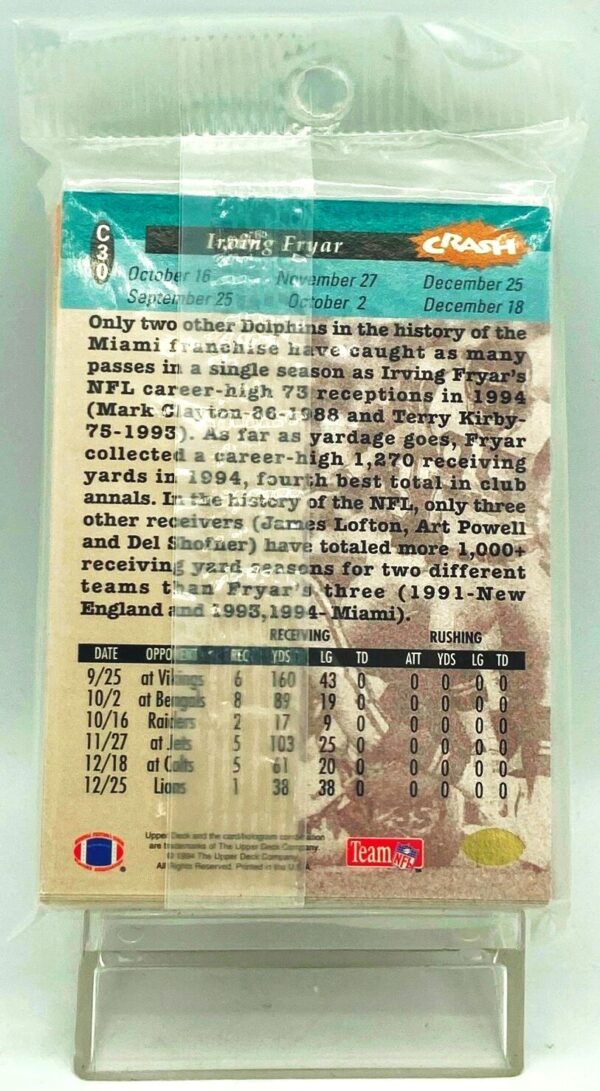 C30
Irving Fryar
CRASH
October 16 November 27 December 25
September 25 October 2 December 18
Only two other Dolphins in the history of the
Miami franchise have caught as many
passes in a single season as Irving Fryar's
NFL career-high 73 receptions in 1994
(Mark Clayton-86-1988 and Terry Kirby-
75-1993). As far as yardage goes, Fryar
collected a career-high 1,270 receiving
yards in 1994, fourth best total in club
annals. In the history of the NFL, only three
other receivers (James Lofton, Art Powell
and Del Shofner) have totaled more 1,000+
receiving yard seasons for two different
teams than Fryar's three (1991-New
England and 1993,1994-Miami).
RECEIVING RUSHING
DATE OPPONENT REC YDS LG TD ATT YDS LG TD
9/25 at Vikings 6 160 43 0 0 0 0 0
10/2 at Bengals 8 89 19 0 0 0 0 0
10/16 Raiders 2 17 9 0 0 0 0 0
11/27 at Jets 5 103 25 0 0 0 0 0
12/18 at Colts 5 61 20 0 0 0 0 0
12/25 Lions 1 38 38 0 0 0 0 0
Upper Deck and the card/hologram combination
are trademarks of The Upper Deck Company.
© 1994 The Upper Deck Company.
All Rights Reserved. Printed in the U.S.A.
Team NFL